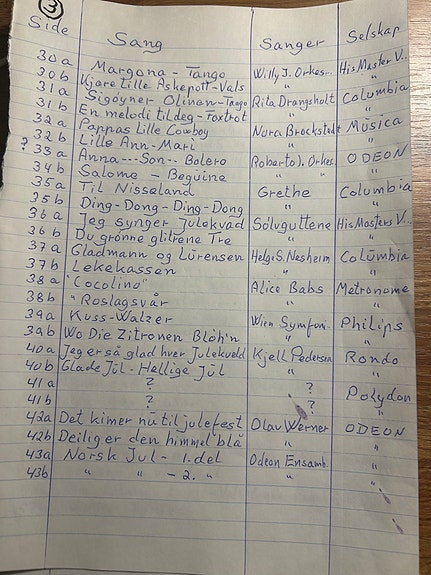 3
Side Sang Sanger Selskap
30a Margona - Tango Willy J. Orkes.. His Master V..
30b Kjære lille Askepott - Vals " "
31a Sigøyner Olinen - Tango Rita Drangsholt Columbia
31b En melodi til deg - Foxtrot " "
32a Pappas Lille Cowboy Nora Brockstedt Musica
32b Lille Ann-Mari " "
? 33a Anna---Son-- Bolero Roberto I. Orkes. ODEON
34b Salome - Beguine " "
35a Til Nisseland Grethe Columbia
35b Ding-Dong-Ding-Dong " "
36a Jeg synger Julekvad Sølvguttene His Masters V..
36b Du grønne glitrene Tre " "
37a Gladmann og Lürensen Helge S. Nesheim Columbia
37b Lekekassen " "
38a "Cocolino" Alice Babs Metronome
38b "Roslagsvår " "
39a Kuss-Walzer Wien Symfon. Philips
39b Wo Die Zitronen Blöh'n " "
40a Jeg er så glad hver Julekveld Kjell Pedersen Rondo
40b Glade Jul - Hellige Jul " "
41a ? ? Polydon
41b ? ? "
42a Det kimer nu til julefest Olav Werner ODEON
42b Deilig er den himmel blå " "
43a Norsk Jul - 1. del Odeon Ensamb. "
43b " " - 2. " " "